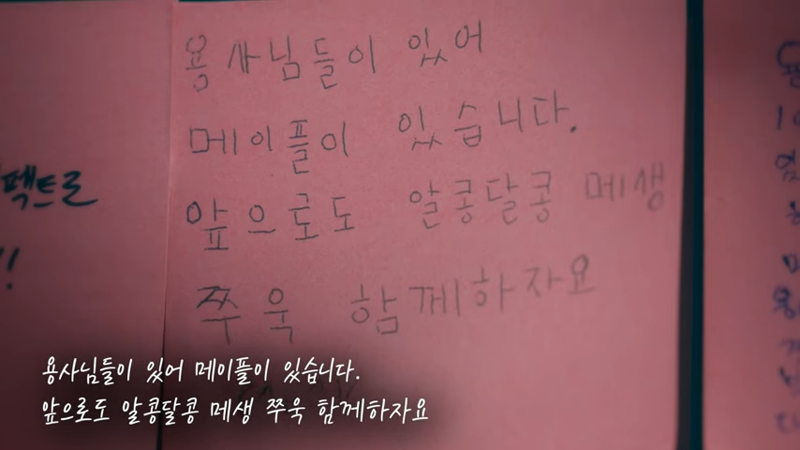 용사님들이 있어
메이플이 있습니다.
앞으로도 알콩달콩 메생
쭈욱 함께하자요
펙트로
!!
용사님들이 있어 메이플이 있습니다.
앞으로도 알콩달콩 메생 쭈욱 함께하자요